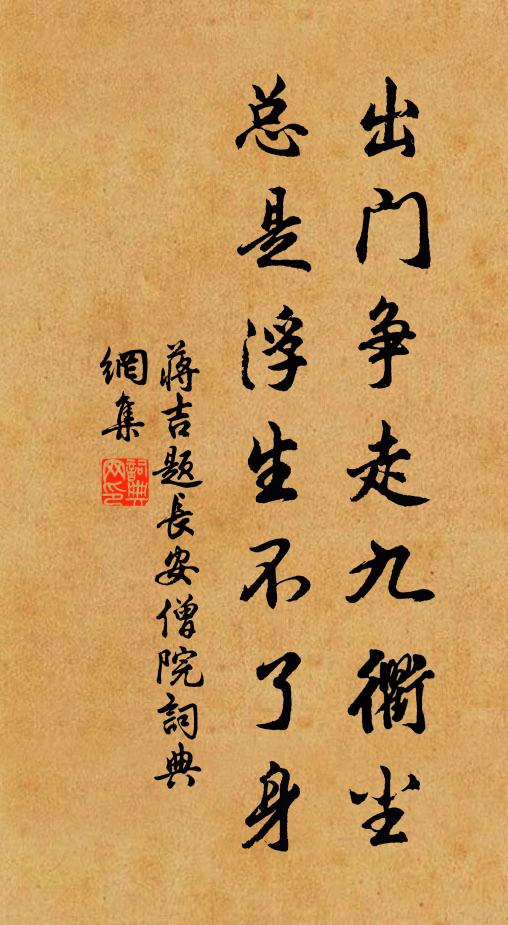 出门争走九衢尘
总是浮生不了身
蒋吉题長安僧院詞典
網集
詞典
网印